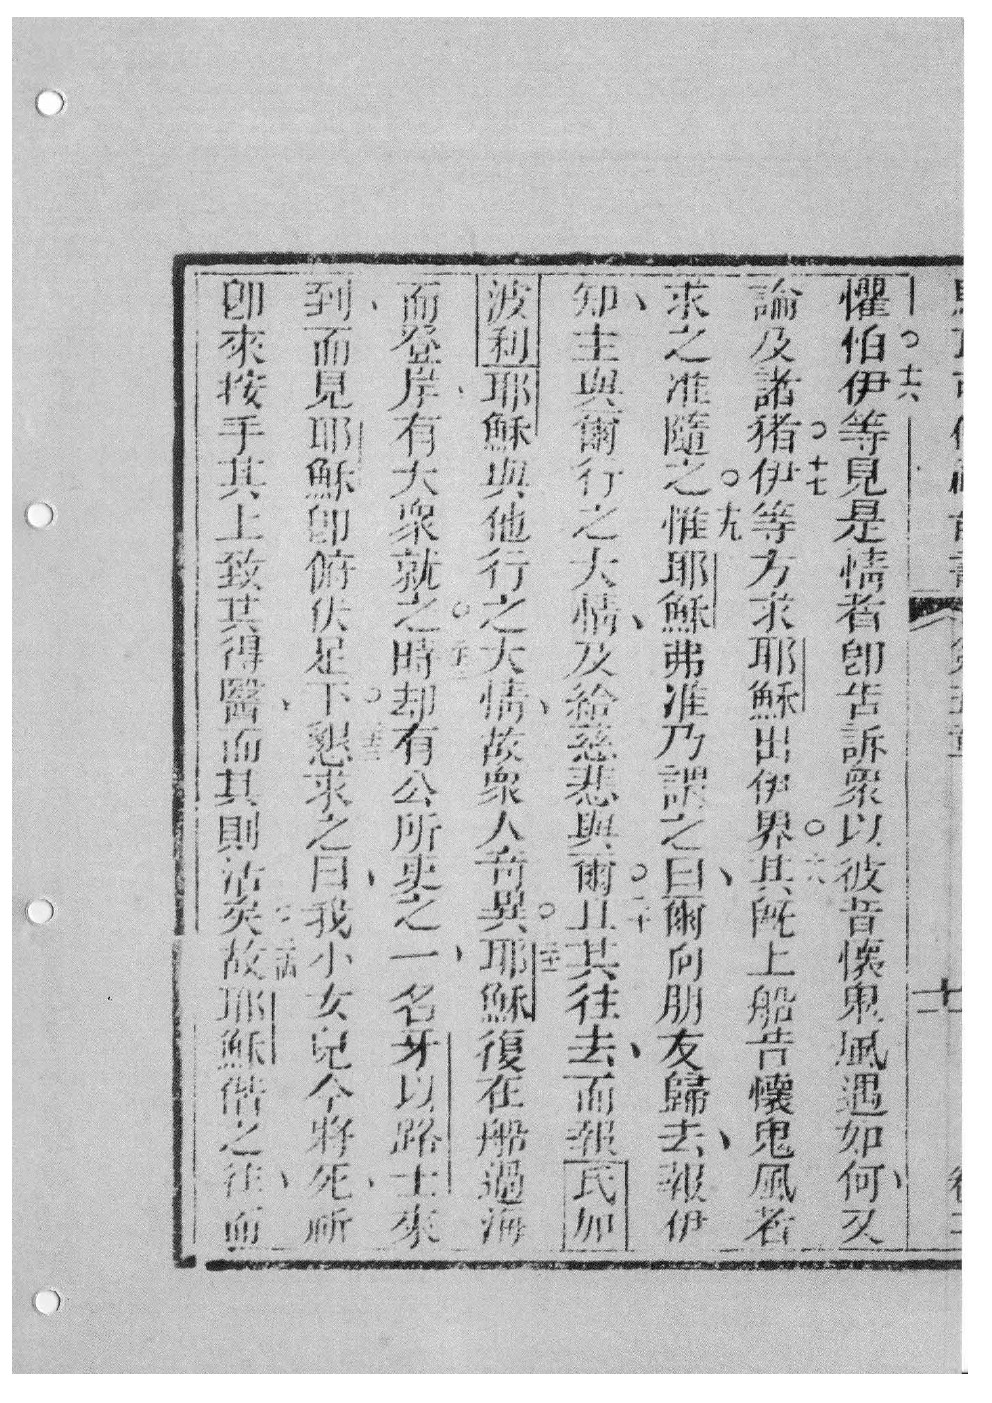 懼○十六伯伊等見是情者卽告訴衆以彼昔懷鬼風遇如何、又
論及諸猪○十七伊等方求耶穌出伊界○十八其旣上船告懷鬼風者
求之准隨之○十九惟耶穌弗准乃謂之曰、爾向朋友歸去、報伊
知、主與爾行之大情、及給慈悲與爾○二十且其往去、而報民加
波利耶穌與他行之大情、故衆人奇異○二十一耶穌復在船過海
而登岸、有大衆就之○二十二時却有公所吏之一、名牙以路士來
到、而見耶穌卽俯伏足下○二十三懇求之曰、我小女兒今將死、祈
卽來按手其上致其得醫、而其則活矣○二十四故耶穌偕之往、而